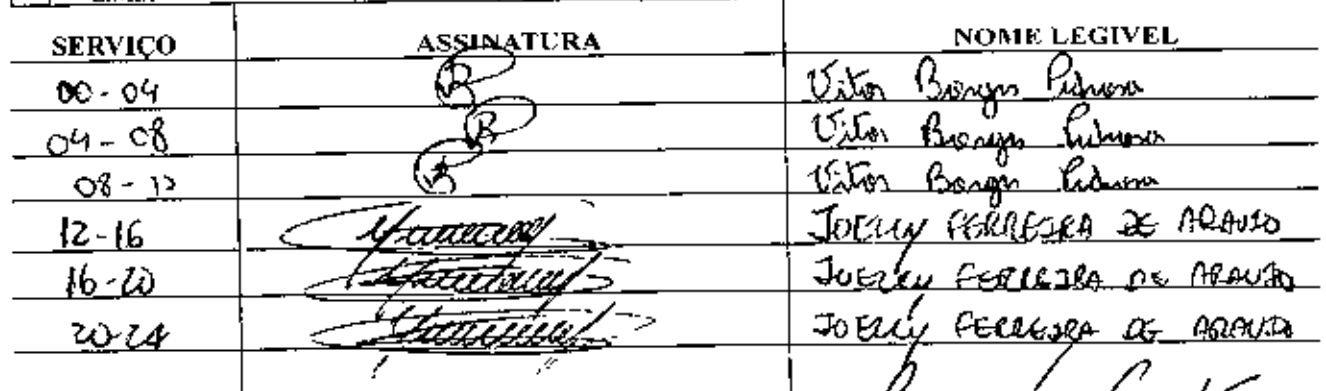 SERVIÇO ASSINATURA NOME LEGIVEL
00 - 04 Vitor Borges Pedrosa
04 - 08 Vitor Borges Pedrosa
08 - 12 Vitor Borges Pedrosa
12 - 16 JOELLY FERREIRA DE ARAUJO
16 - 20 JOELLY FERREIRA DE ARAUJO
20-24 JOELLY FERREIRA DE ARAUJO